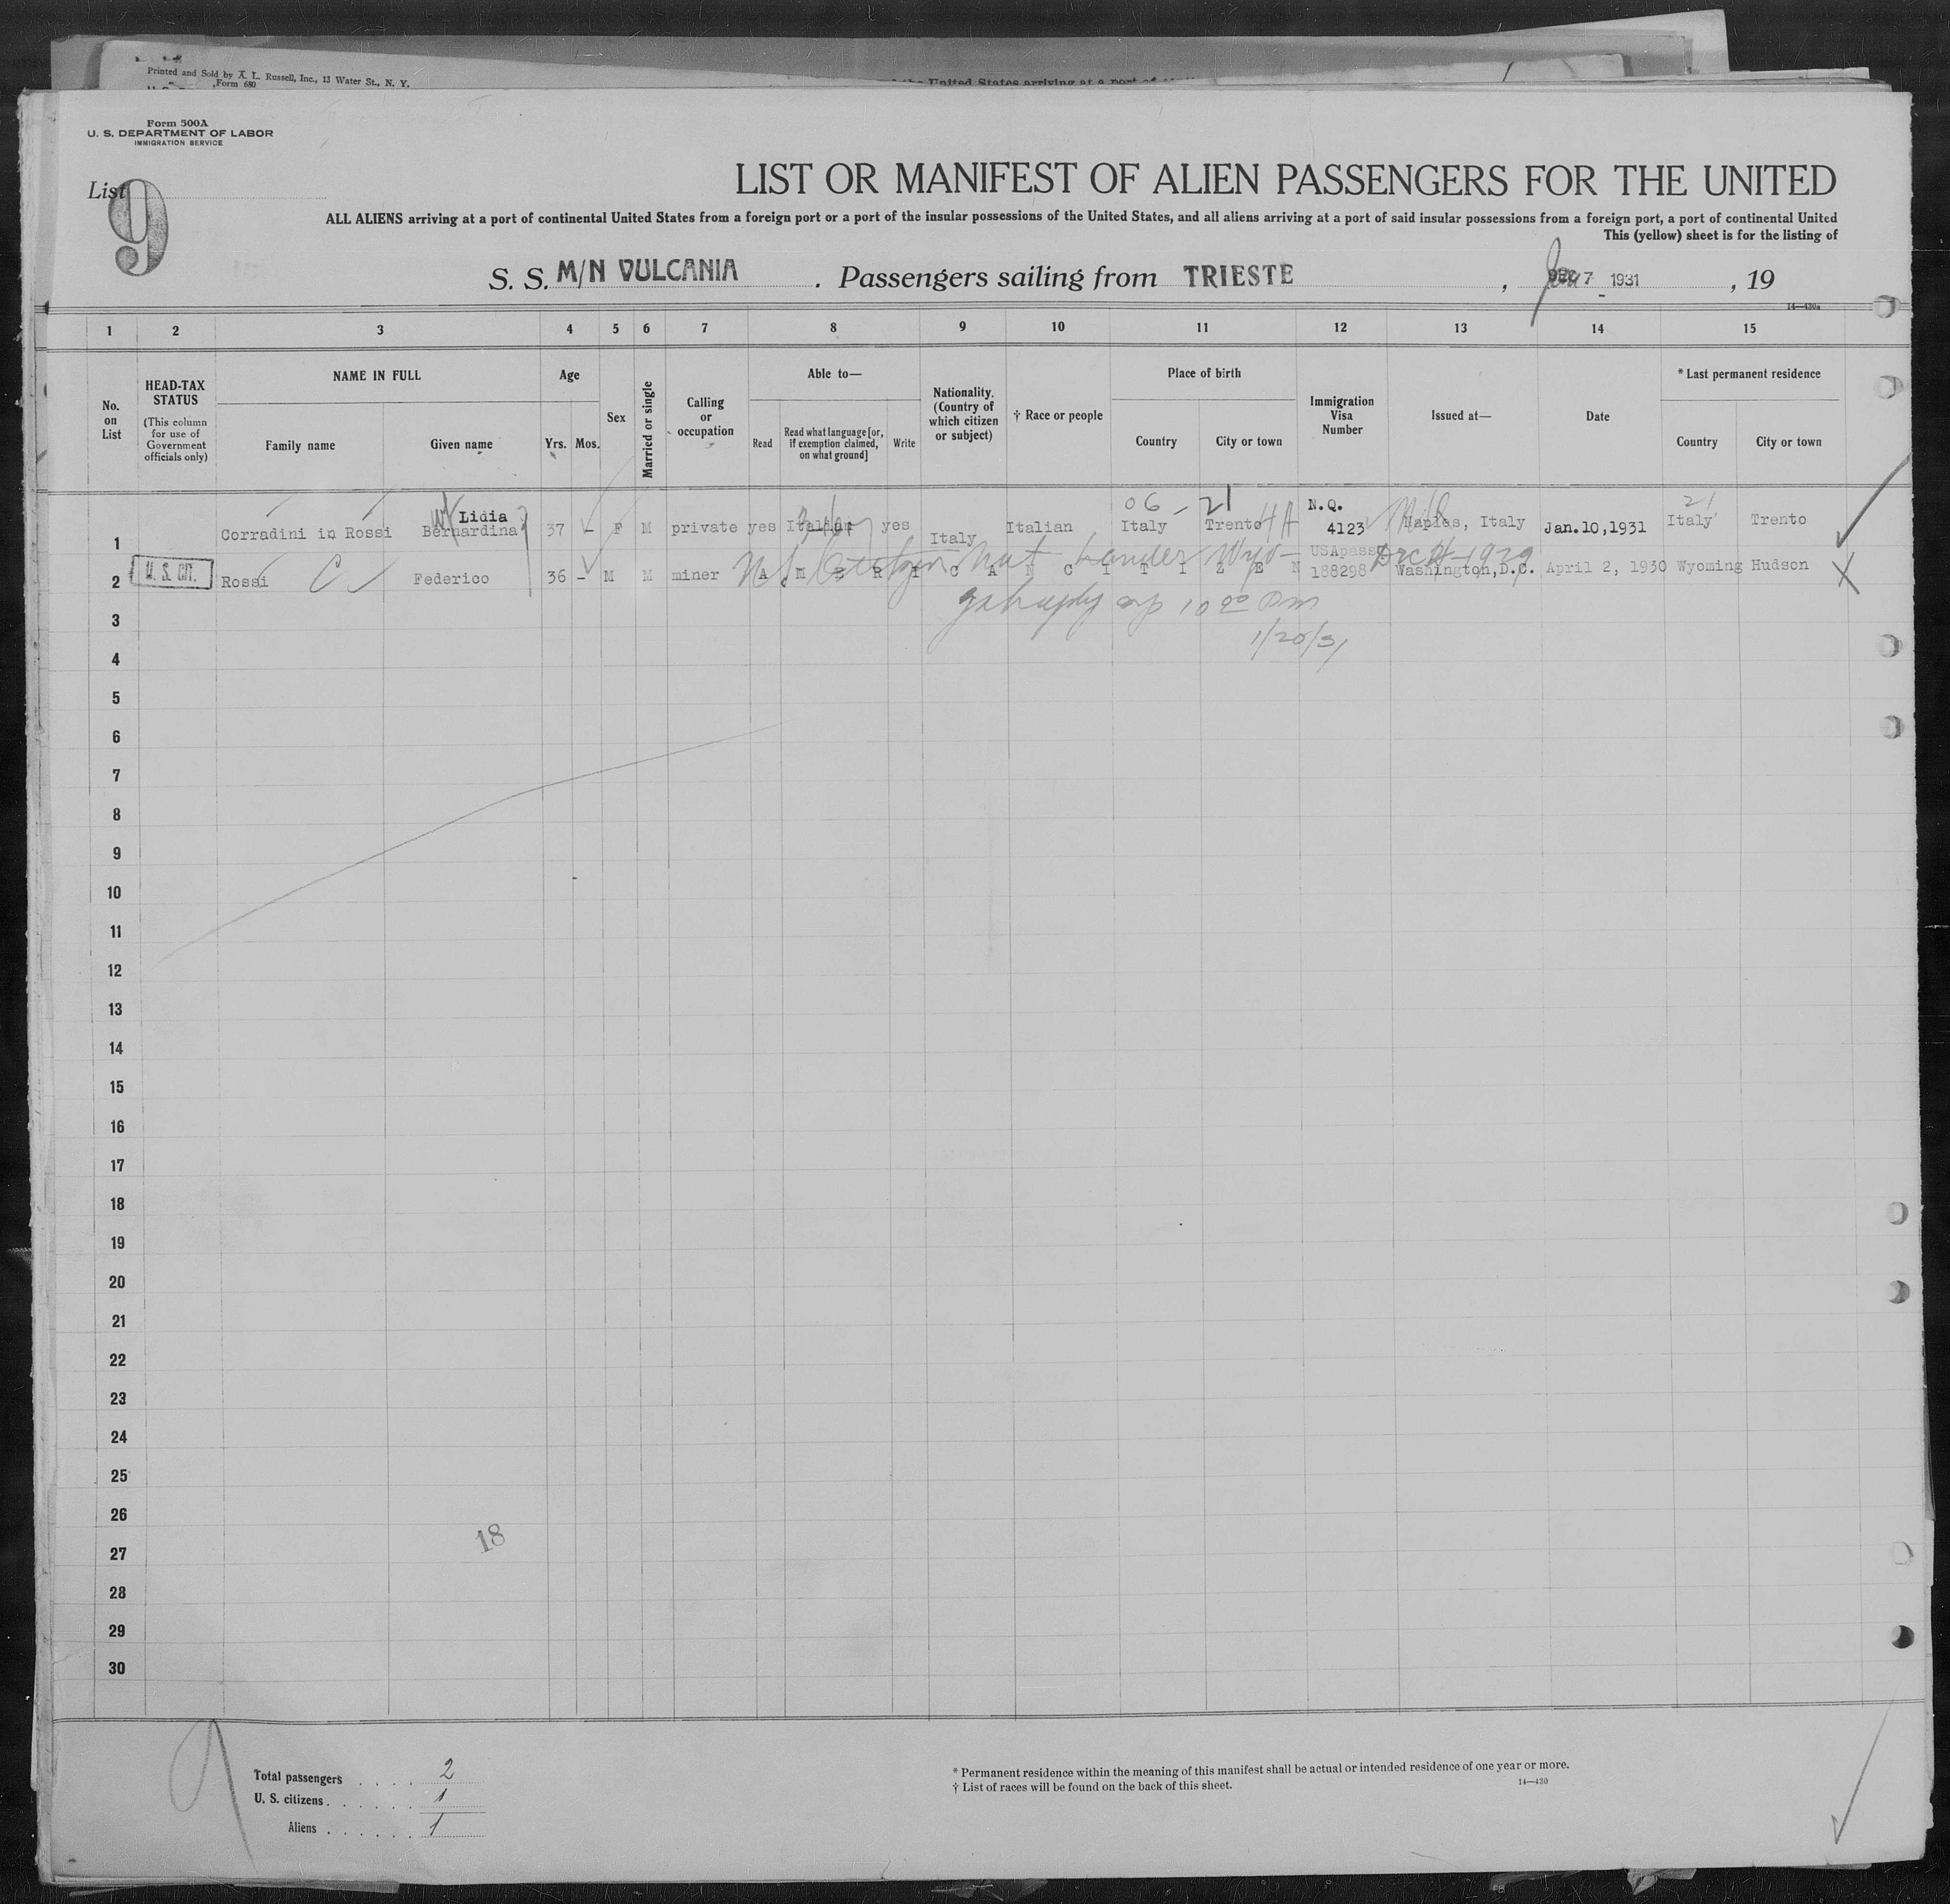 Printed and Sold by A. L. Russell, Inc., 13 Water St., N. Y.
Form 680
United States arriving at a port of
Form 500A
U. S. DEPARTMENT OF LABOR
IMMIGRATION SERVICE
List 9
LIST OR MANIFEST OF ALIEN PASSENGERS FOR THE UNITED
ALL ALIENS arriving at a port of continental United States from a foreign port or a port of the insular possessions of the United States, and all aliens arriving at a port of said insular possessions from a foreign port, a port of continental United
This (yellow) sheet is for the listing of
S. S. M/N VULCANIA . Passengers sailing from TRIESTE , Jan 7 1931 , 19
14—430a
1 2 3 4 5 6 7 8 9 10 11 12 13 14 15
No. on List
HEAD-TAX STATUS (This column for use of Government officials only)
NAME IN FULL Family name Given name
Age Yrs. Mos.
Sex
Married or single
Calling or occupation
Able to— Read Read what language [or, if exemption claimed, on what ground] Write
Nationality. (Country of which citizen or subject)
† Race or people
Place of birth Country City or town
Immigration Visa Number
Issued at—
Date
* Last permanent residence Country City or town
06 - 21 N.Q. 21
Lidia
1 Corradini in Rossi Bernardina 37 - F M private yes Italian yes Italy Italian Italy Trento 4123 Naples, Italy Jan.10,1931 Italy Trento
USApass
2 U. S. CIT. Rossi Federico 36 - M M miner A M E R I C A N C I T I Z E N 188298 Washington,D.C. April 2, 1930 Wyoming Hudson
Nat Lander Wyo - Dec 4-1929
10 00 Pm
1/20/31
3
4
5
6
7
8
9
10
11
12
13
14
15
16
17
18
19
20
21
22
23
24
25
26
18
27
28
29
30
9
Total passengers . . . . 2
U. S. citizens . . . . . . 1
Aliens . . . . . . 1
* Permanent residence within the meaning of this manifest shall be actual or intended residence of one year or more.
† List of races will be found on the back of this sheet.
14—430